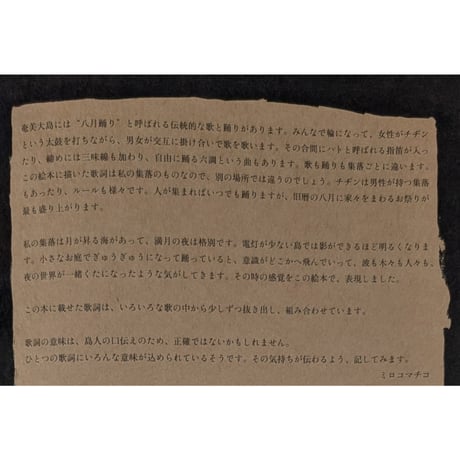 奄美大島には“八月踊り”と呼ばれる伝統的な歌と踊りがあります。みんなで輪になって、女性がチヂン
という太鼓を打ちながら、男女が交互に掛け合いで歌を歌います。その合間にハトと呼ばれる指笛が入っ
たり、締めには三味線も加わり、自由に踊る六調という曲もあります。歌も踊りも集落ごとに違います。
この絵本に描いた歌詞は私の集落のものなので、別の場所では違うのでしょう。チヂンは男性が持つ集落
もあったり、ルールも様々です。人が集まればいつでも踊りますが、旧暦の八月に家々をまわるお祭りが
最も盛り上がります。
私の集落は月が昇る海があって、満月の夜は格別です。電灯が少ない島では影ができるほど明るくなりま
す。小さなお庭でぎゅうぎゅうになって踊っていると、意識がどこかへ飛んでいって、波も木々も人々も、
夜の世界が一緒くたになったような気がしてきます。その時の感覚をこの絵本で、表現しました。
この本に載せた歌詞は、いろいろな歌の中から少しずつ抜き出し、組み合わせています。
歌詞の意味は、島人の口伝えのため、正確ではないかもしれません。
ひとつの歌詞にいろんな意味が込められているそうです。その気持ちが伝わるよう、記してみます。
ミロコマチコ